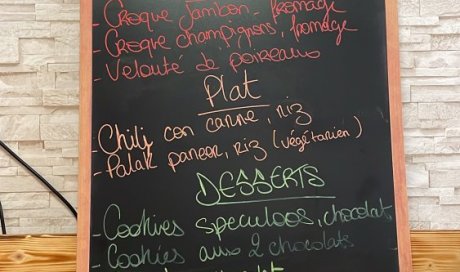 - Croque Jambon, fromage
- Croque champignons, fromage
- Velouté de poireaux
Plat
- Chili con carne, riz
- Palak paneer, riz (végétarien)
DESSERTS
- Cookies speculoos, chocolat
- Cookies aux 2 chocolats